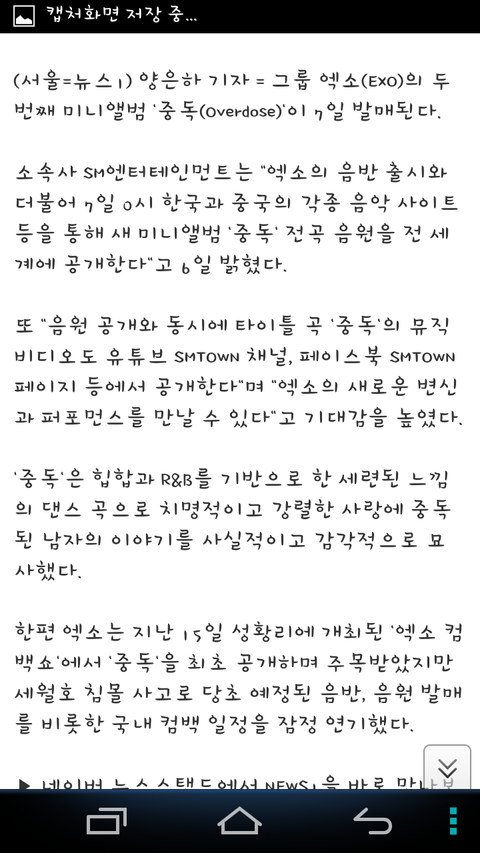 캡처화면 저장 중...
(서울=뉴스1) 양은하 기자 = 그룹 엑소(EXO)의 두
번째 미니앨범 '중독(Overdose)'이 7일 발매된다.
소속사 SM엔터테인먼트는 "엑소의 음반 출시와
더불어 7일 0시 한국과 중국의 각종 음악 사이트
등을 통해 새 미니앨범 '중독' 전곡 음원을 전 세
계에 공개한다"고 6일 밝혔다.
또 "음원 공개와 동시에 타이틀 곡 '중독'의 뮤직
비디오도 유튜브 SMTOWN 채널, 페이스북 SMTOWN
페이지 등에서 공개한다"며 "엑소의 새로운 변신
과 퍼포먼스를 만날 수 있다"고 기대감을 높였다.
'중독'은 힙합과 R&B를 기반으로 한 세련된 느낌
의 댄스 곡으로 치명적이고 강렬한 사랑에 중독
된 남자의 이야기를 사실적이고 감각적으로 묘
사했다.
한편 엑소는 지난 15일 성황리에 개최된 '엑소 컴
백쇼'에서 '중독'을 최초 공개하며 주목받았지만
세월호 침몰 사고로 당초 예정된 음반, 음원 발매
를 비롯한 국내 컴백 일정을 잠정 연기했다.
▶ 네이버 뉴스스탠드에서 NEWS1을 바로 만나보